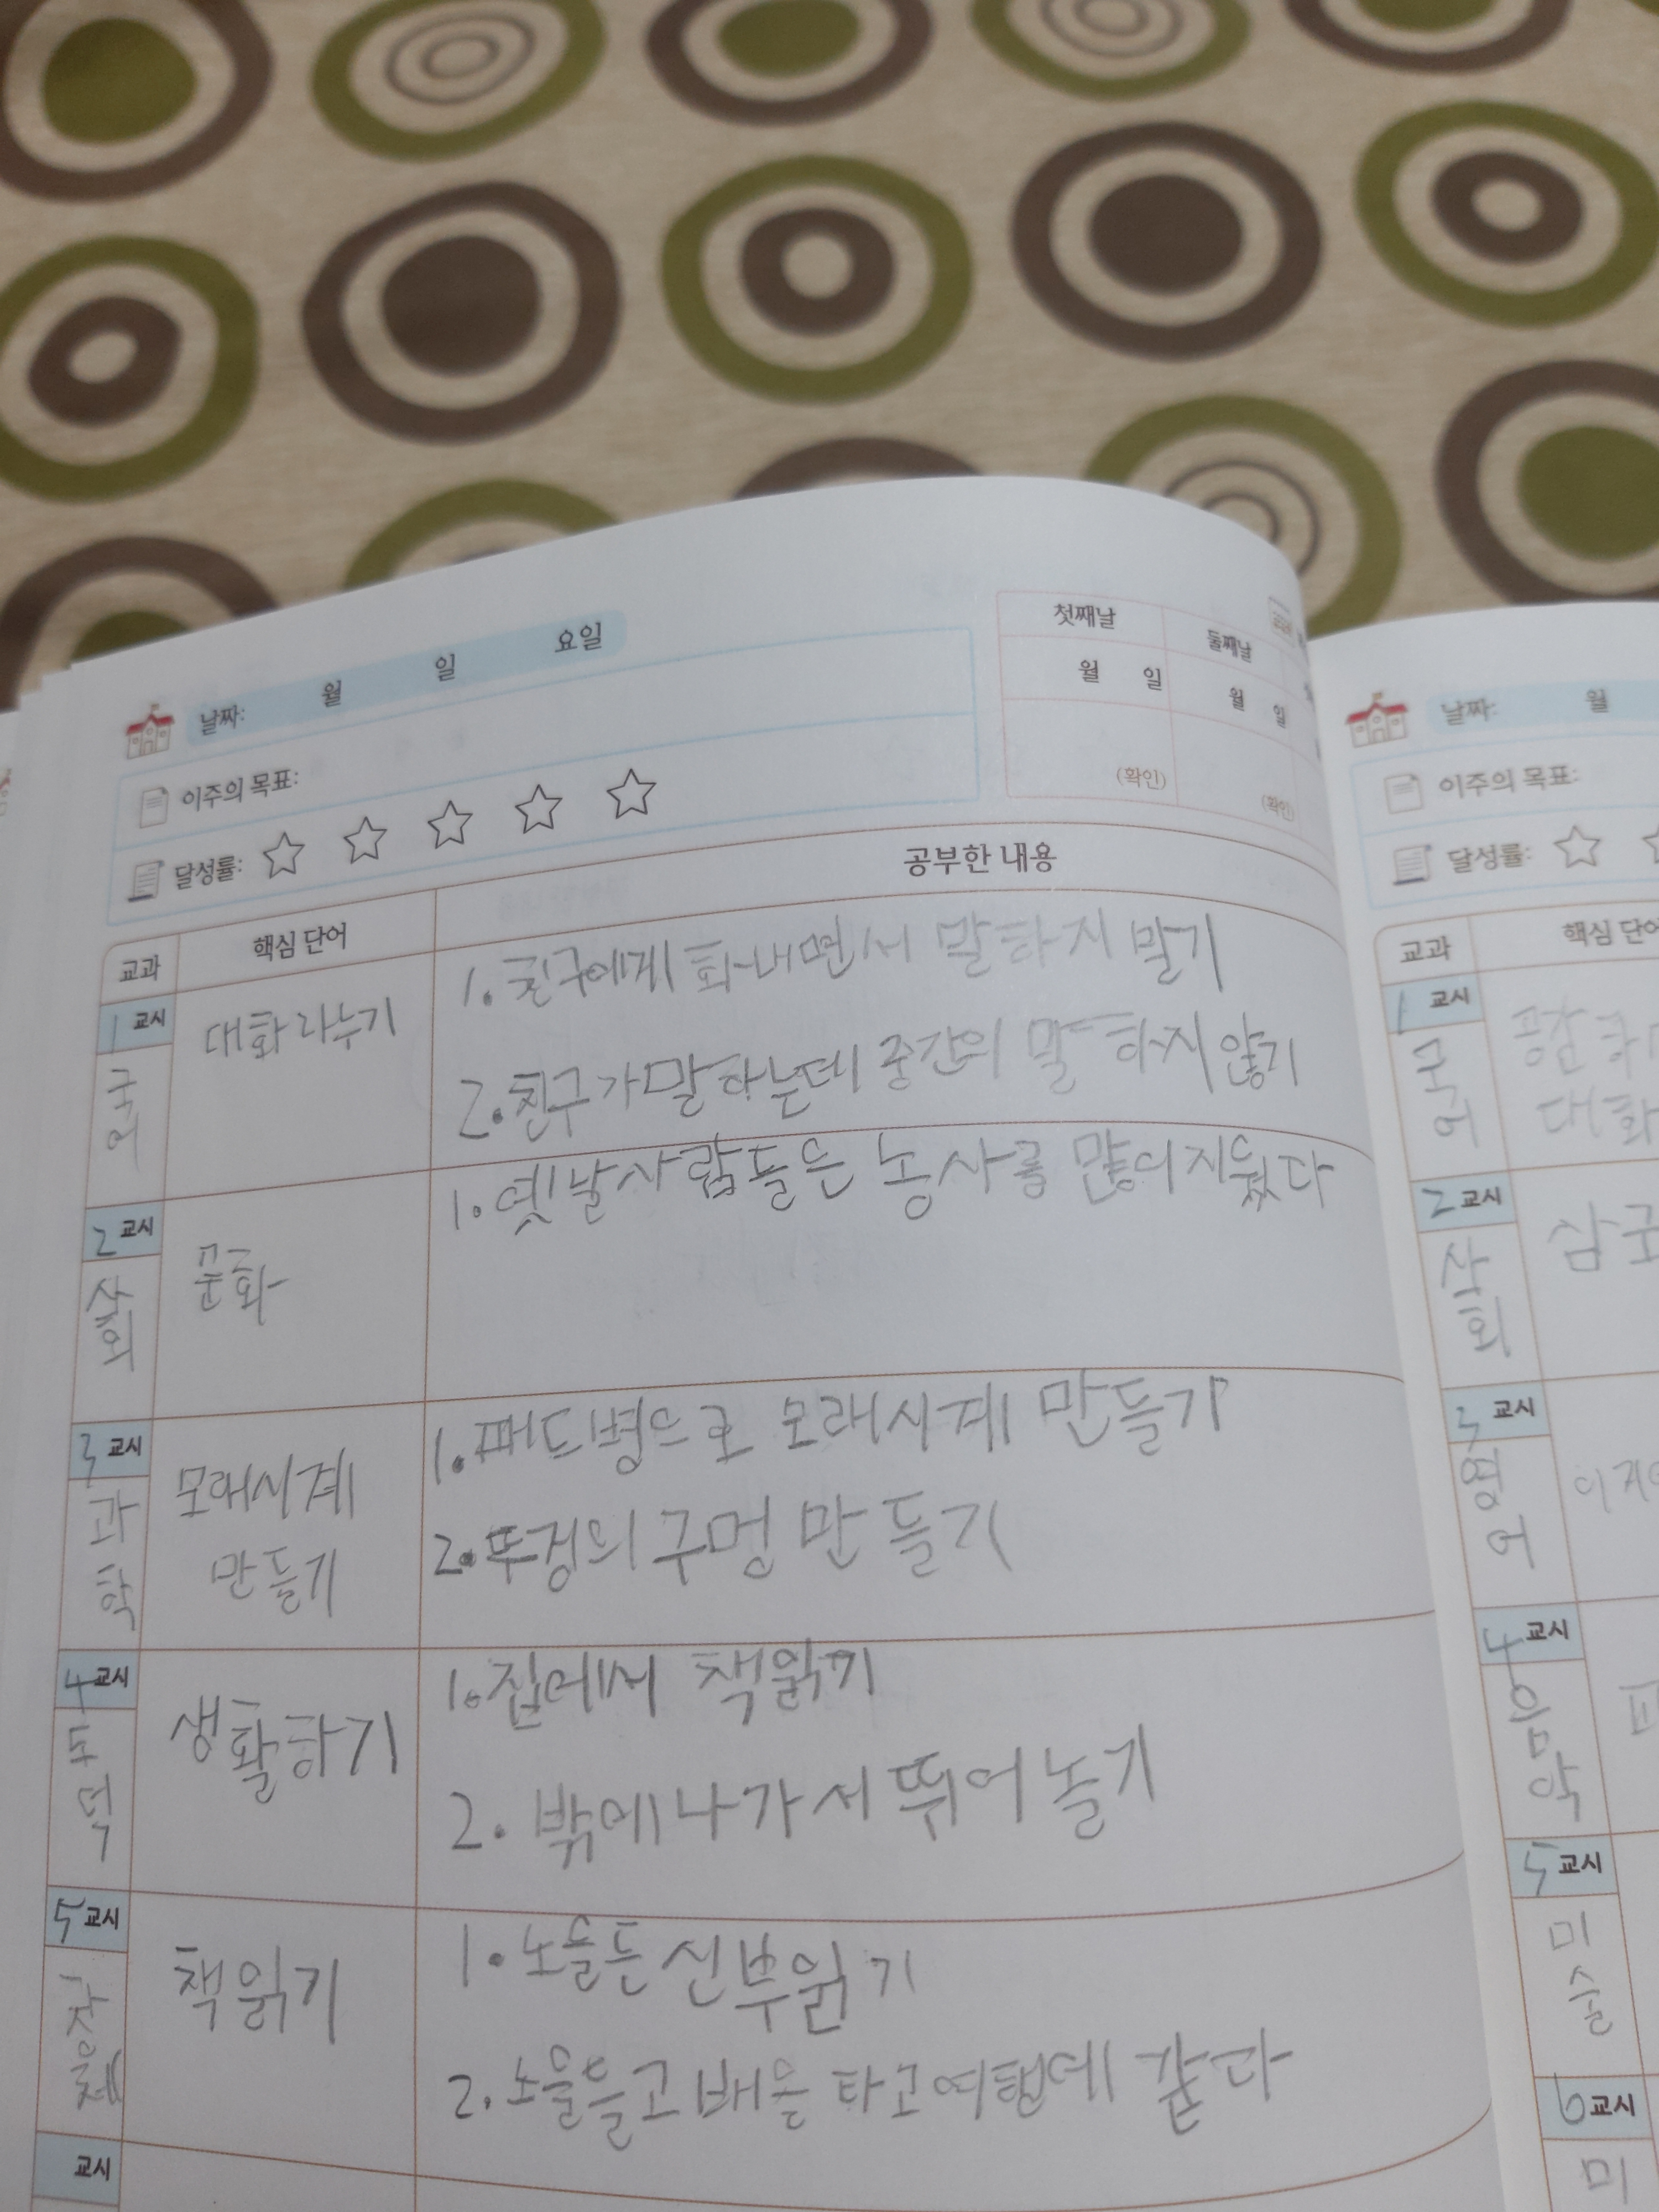 날짜: 월 일 요일
이주의 목표:
달성률:
첫째날 둘째날
월 일 월 일
(확인) (확인)
교과 핵심 단어 공부한 내용
1 교시
국어
대화 나누기
1. 친구에게 화내면서 말하지 말기
2. 친구가 말하는데 중간의 말하지 않기
2 교시
사회
문화
1. 옛날사람들은 농사를 많이 지웠다
3 교시
과학
모래시계
만들기
1. 패드병으로 모래시계 만들기
2. 뚜껑의 구멍 만들기
4 교시
도덕
생활하기
1. 집에서 책읽기
2. 밖에 나가서 뛰어 놀기
5 교시
책읽기
1. 노를든 신부읽기
2. 배을 타고
교시
날짜: 월
이주의 목표:
달성률:
교과 핵심 단어
1 교시
국어
대화
2 교시
사회
삼국
3 교시
영어
4 교시
음악
5 교시
미술
6 교시
미